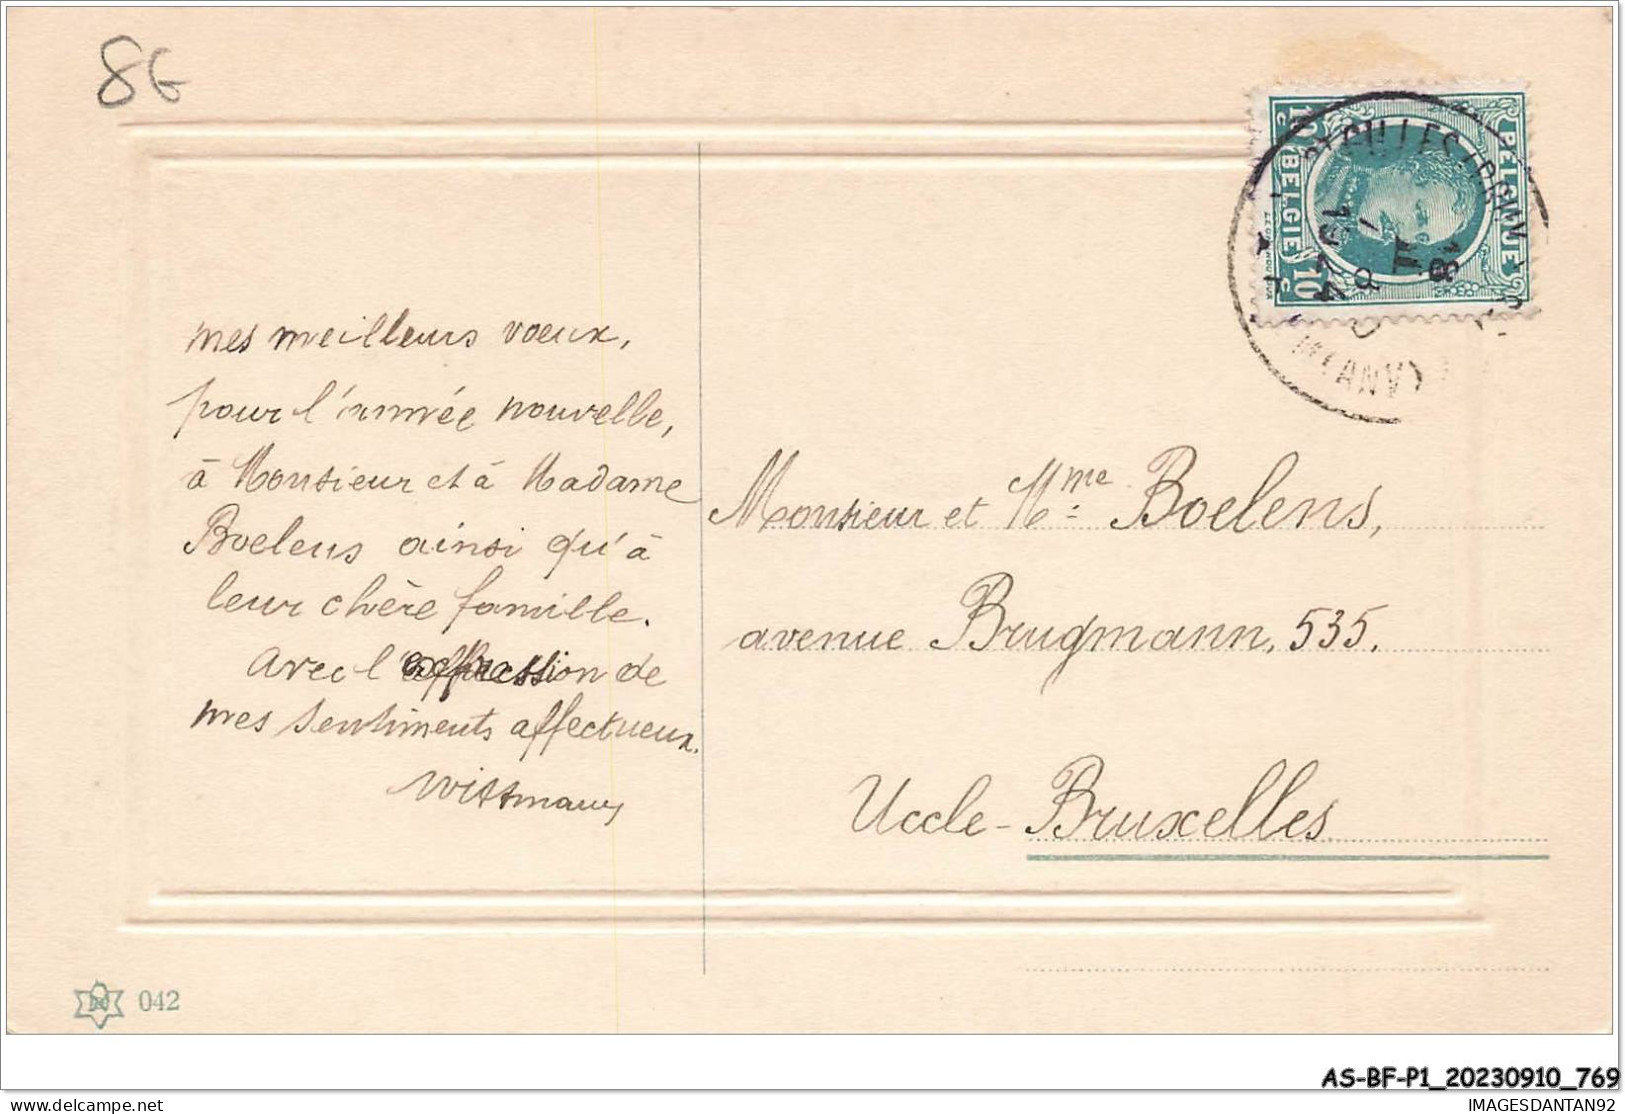 8G
BELGIQUE
BELGIË
10 c
10 c
mes meilleurs voeux,
pour l'année nouvelle,
à Monsieur et à Madame
Boelens ainsi qu'à
leur chère famille.
Avec l'expression de
mes sentiments affectueux.
Wittmann
Monsieur et Mme Boelens,
avenue Brugmann, 535.
Uccle-Bruxelles
042
AS-BF-P1_20230910_769
delcampe.net
IMAGESDANTAN92